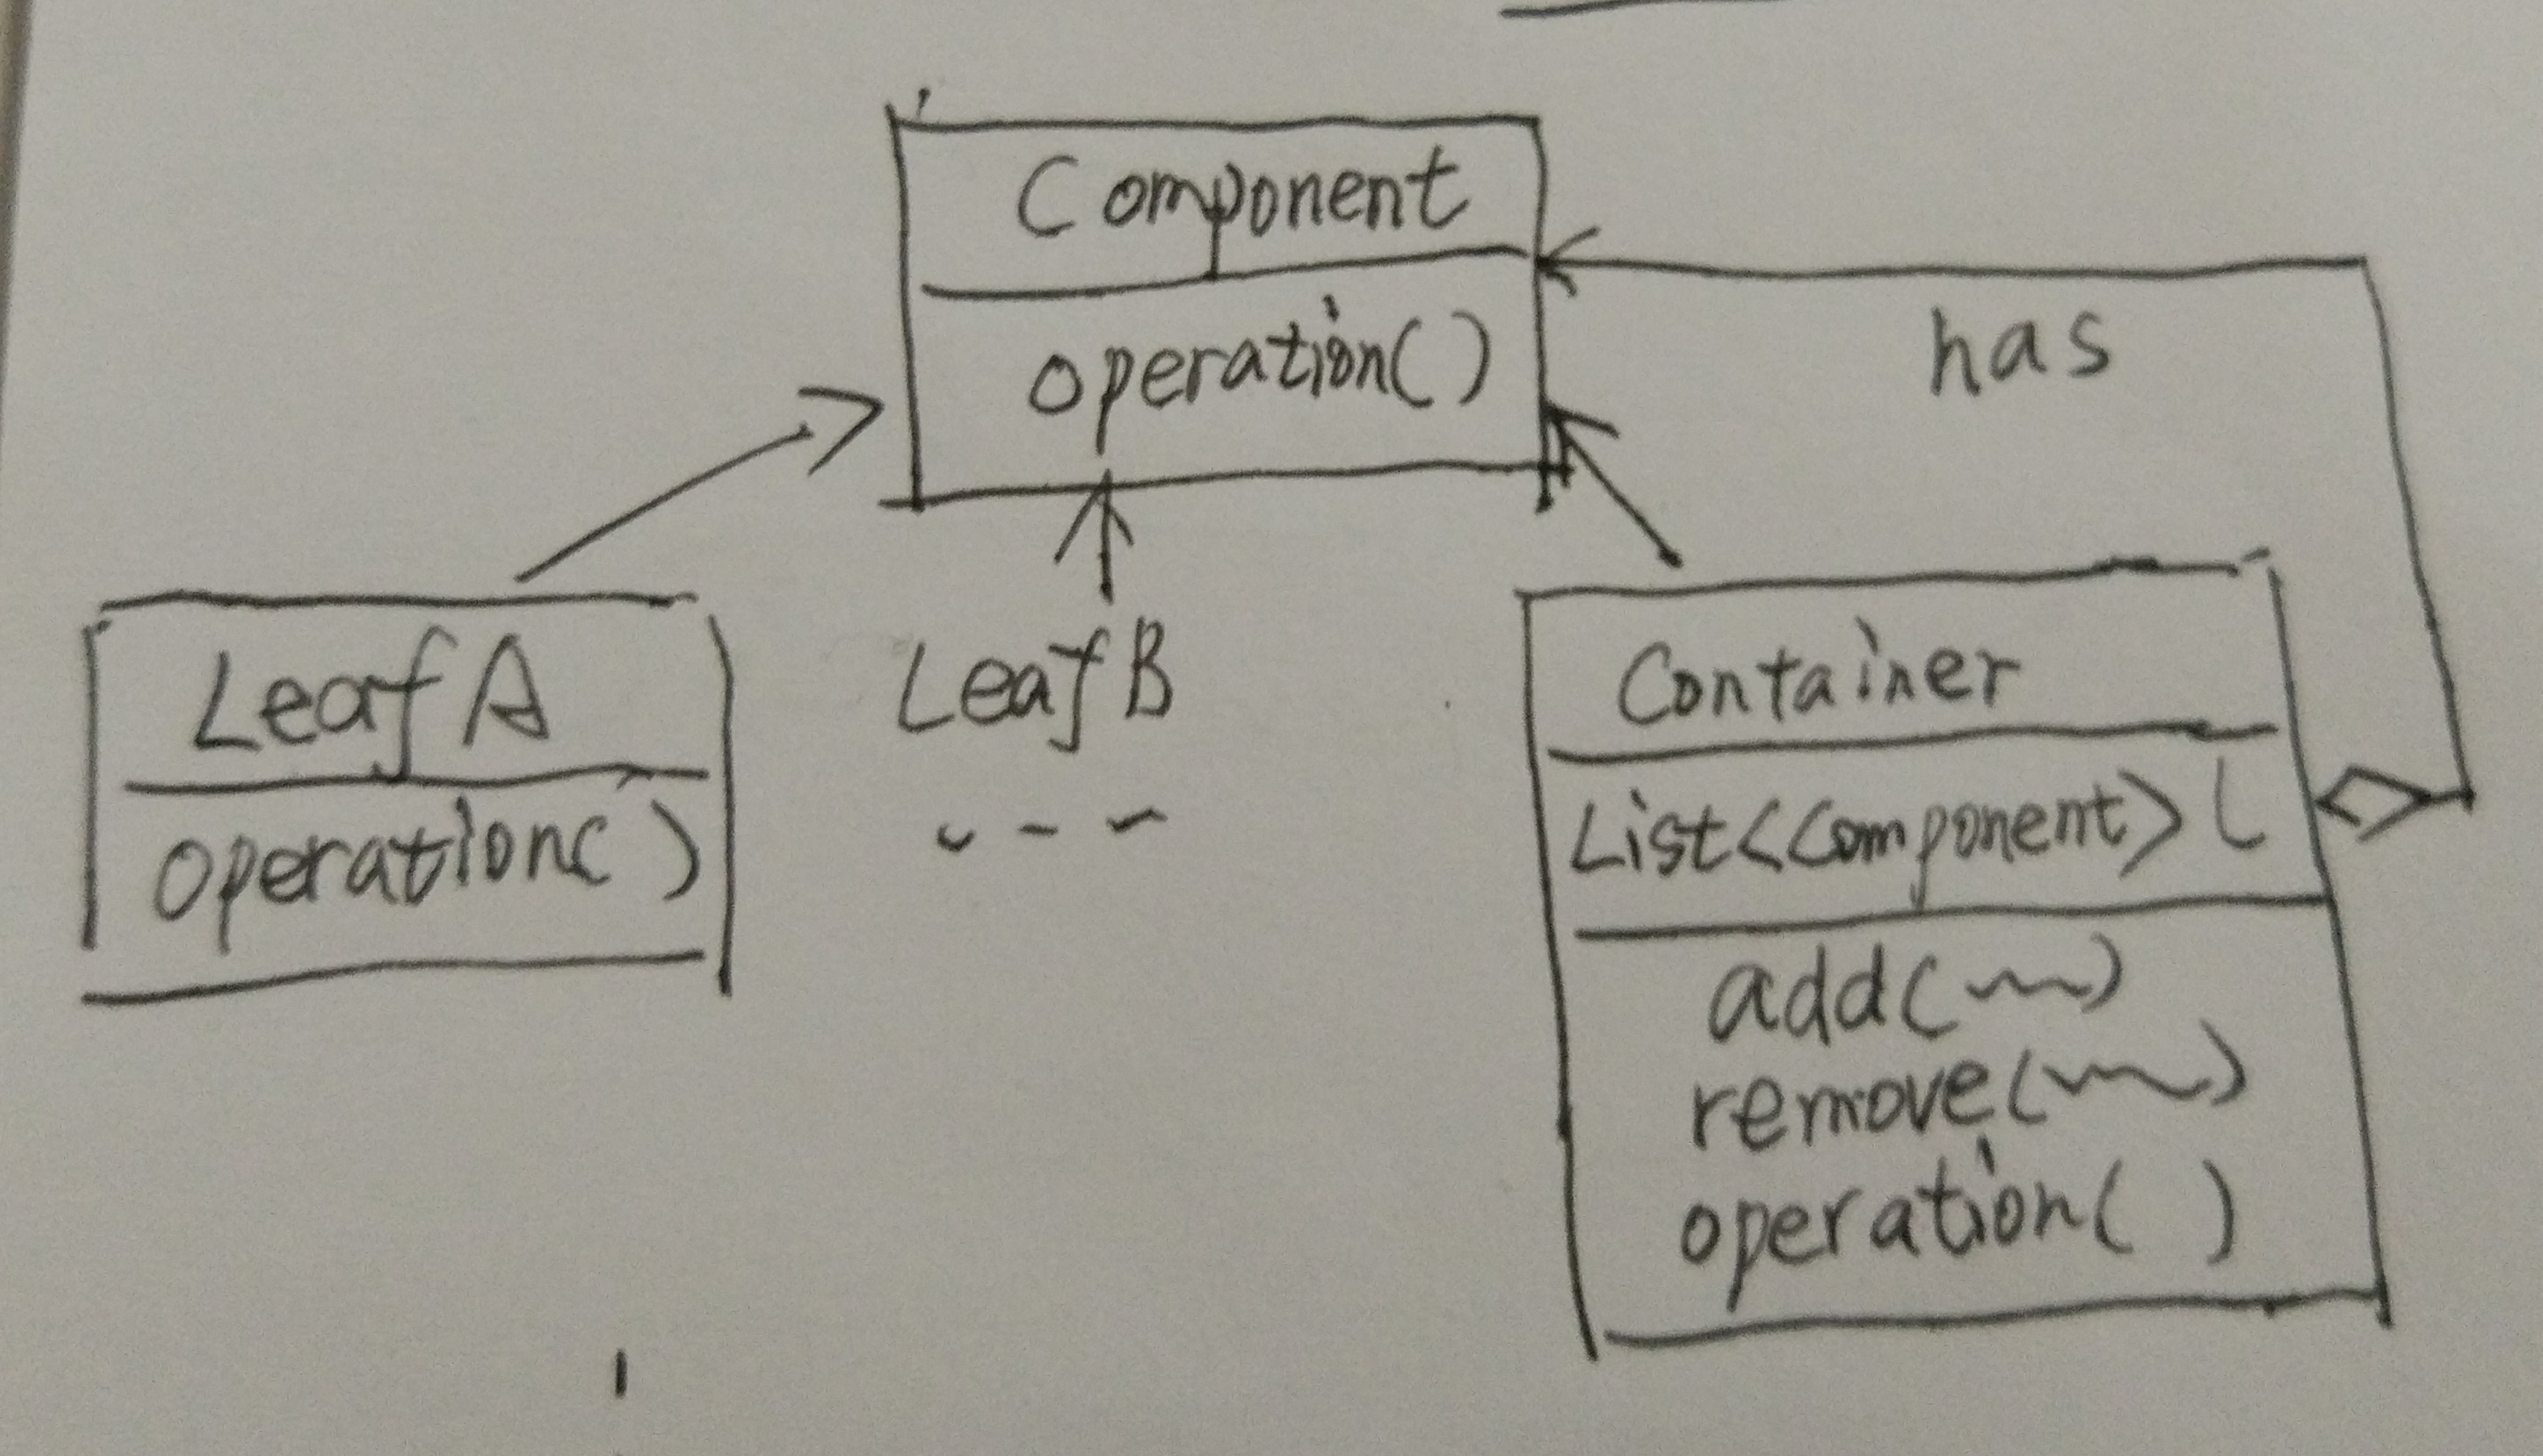 Component
operation()
has
Leaf A
operation()
Leaf B
---
Container
List<Component> l
add(~~)
remove(~~)
operation( )